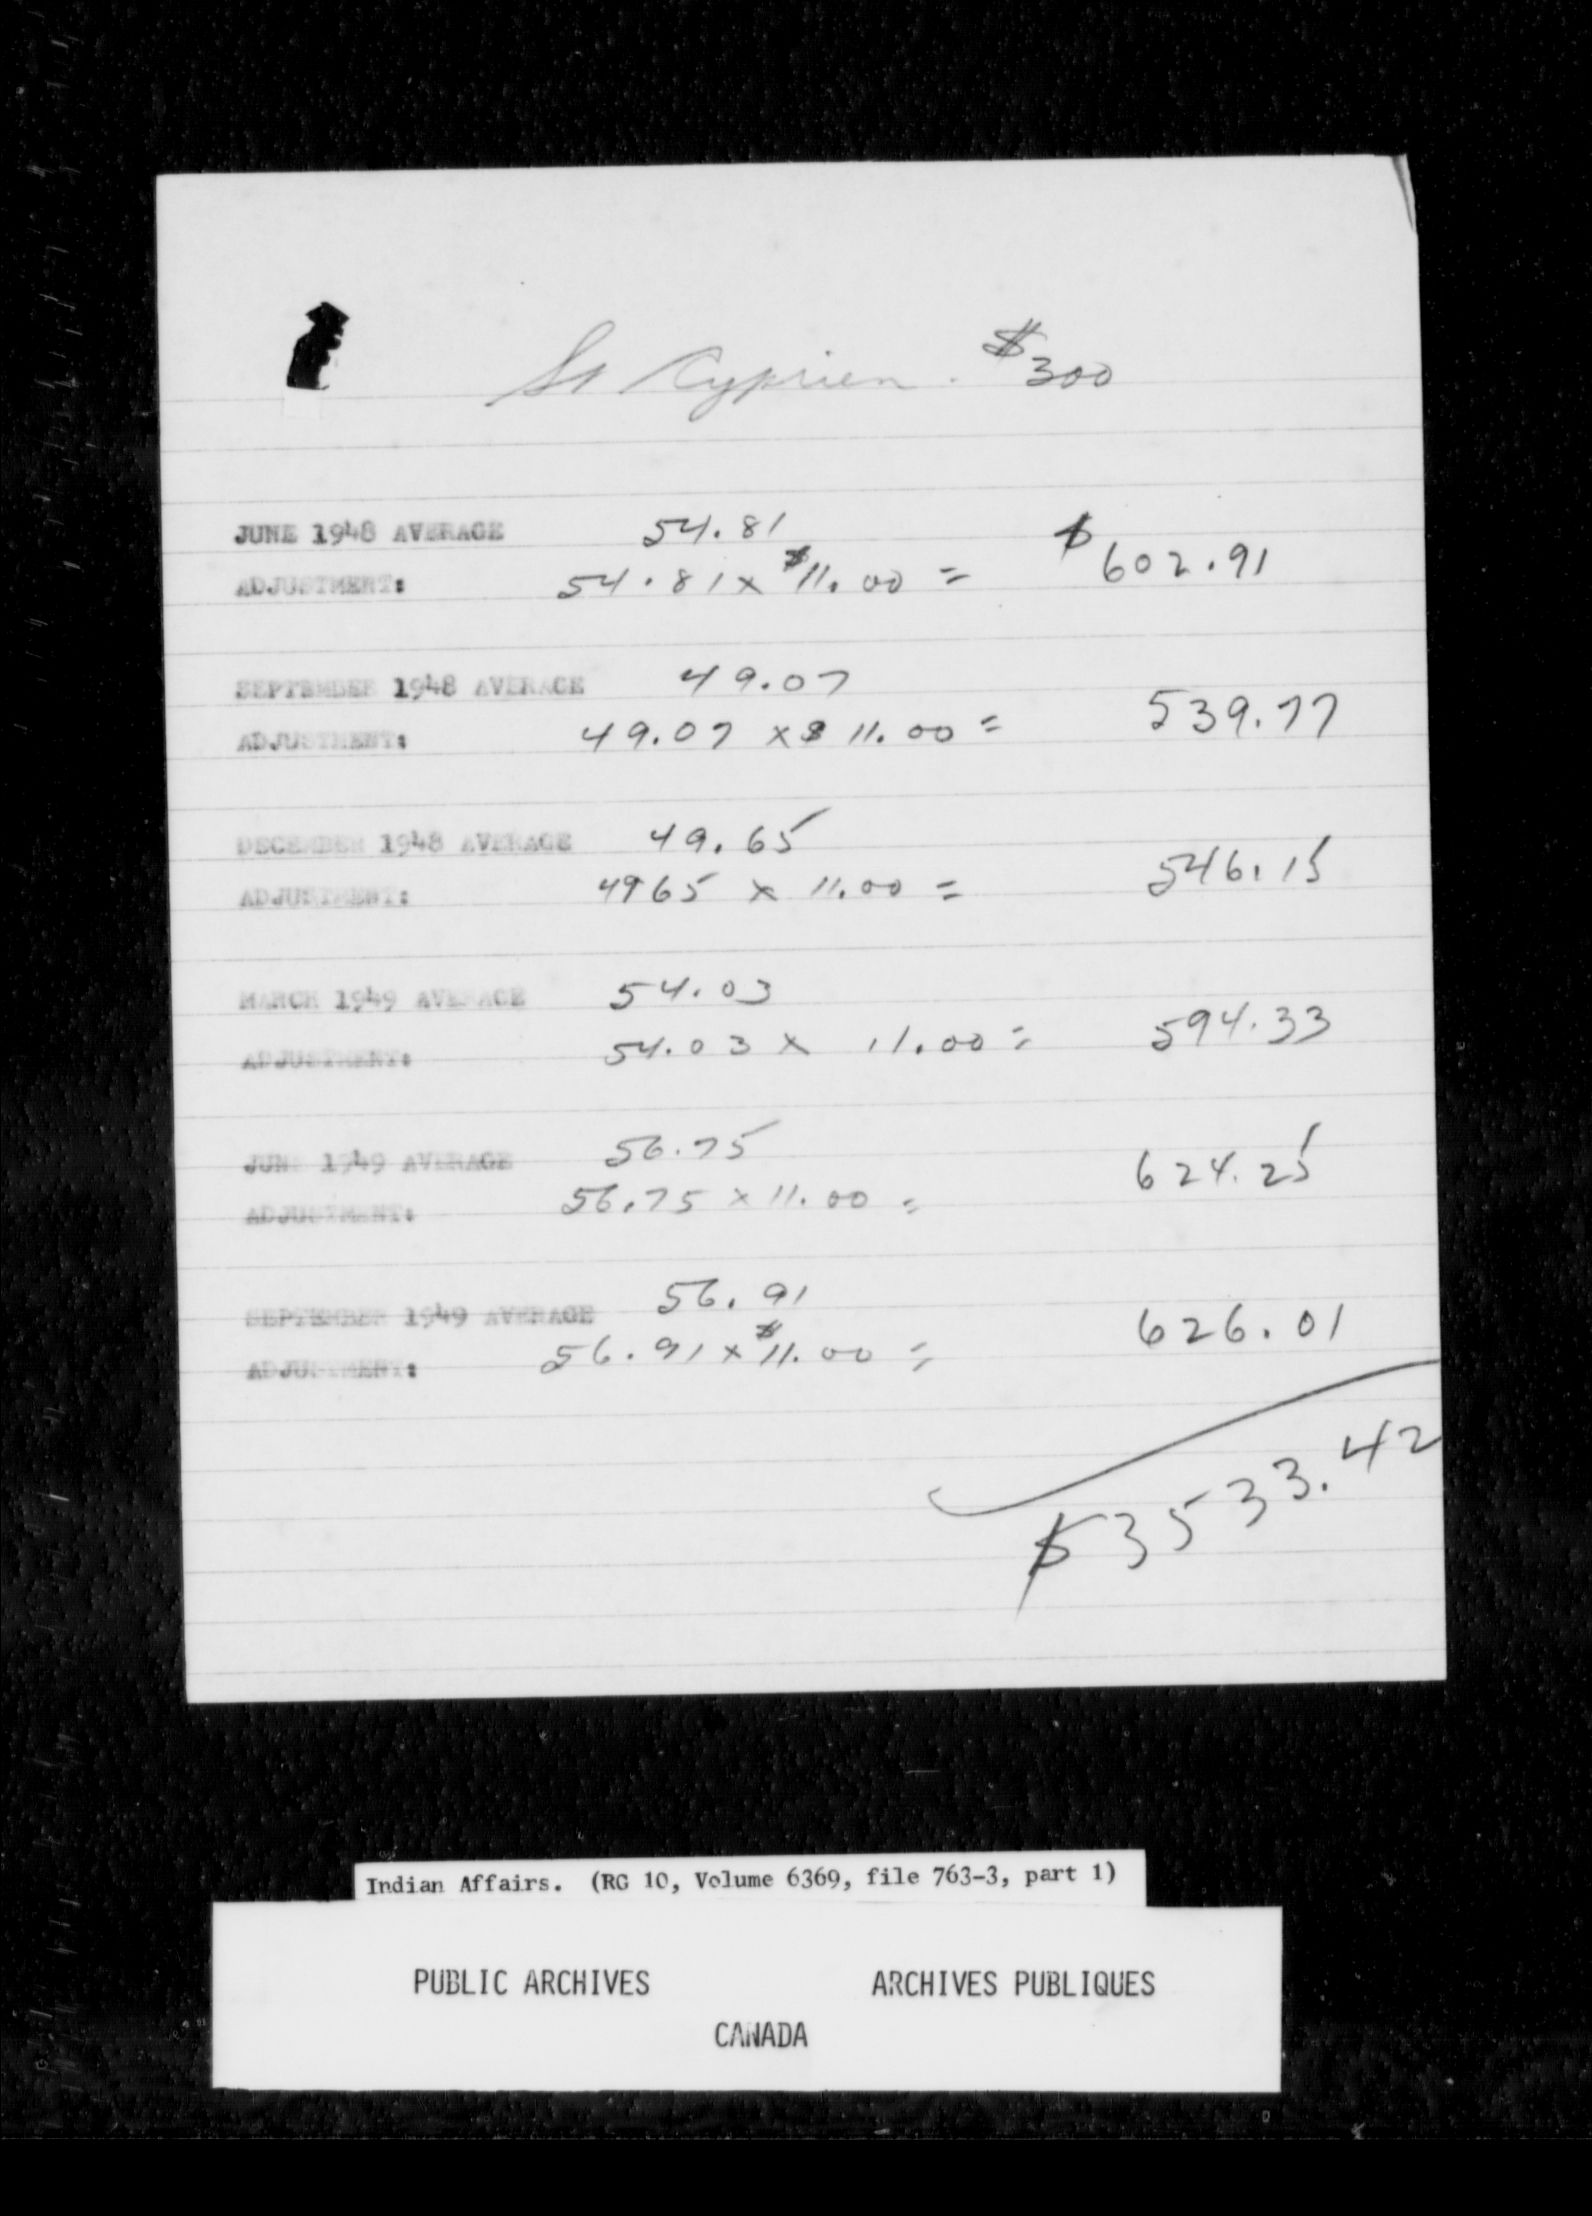 St Cyprien. $300
JUNE 1948 AVERAGE 54.81
ADJUSTMENT: 54.81 x $11.00 = $602.91
SEPTEMBER 1948 AVERAGE 49.07
ADJUSTMENT: 49.07 x $ 11.00 = 539.77
DECEMBER 1948 AVERAGE 49.65
ADJUSTMENT: 4965 x 11.00 = 546.15
MARCH 1949 AVERAGE 54.03
ADJUSTMENT: 54.03 x 11.00 = 594.33
JUNE 1949 AVERAGE 56.75
ADJUSTMENT: 56.75 x 11.00 = 624.25
SEPTEMBER 1949 AVERAGE 56.91
ADJUSTMENT: 56.91 x $11.00 = 626.01
$3533.42
Indian Affairs. (RG 10, Volume 6369, file 763-3, part 1)
PUBLIC ARCHIVES ARCHIVES PUBLIQUES
CANADA